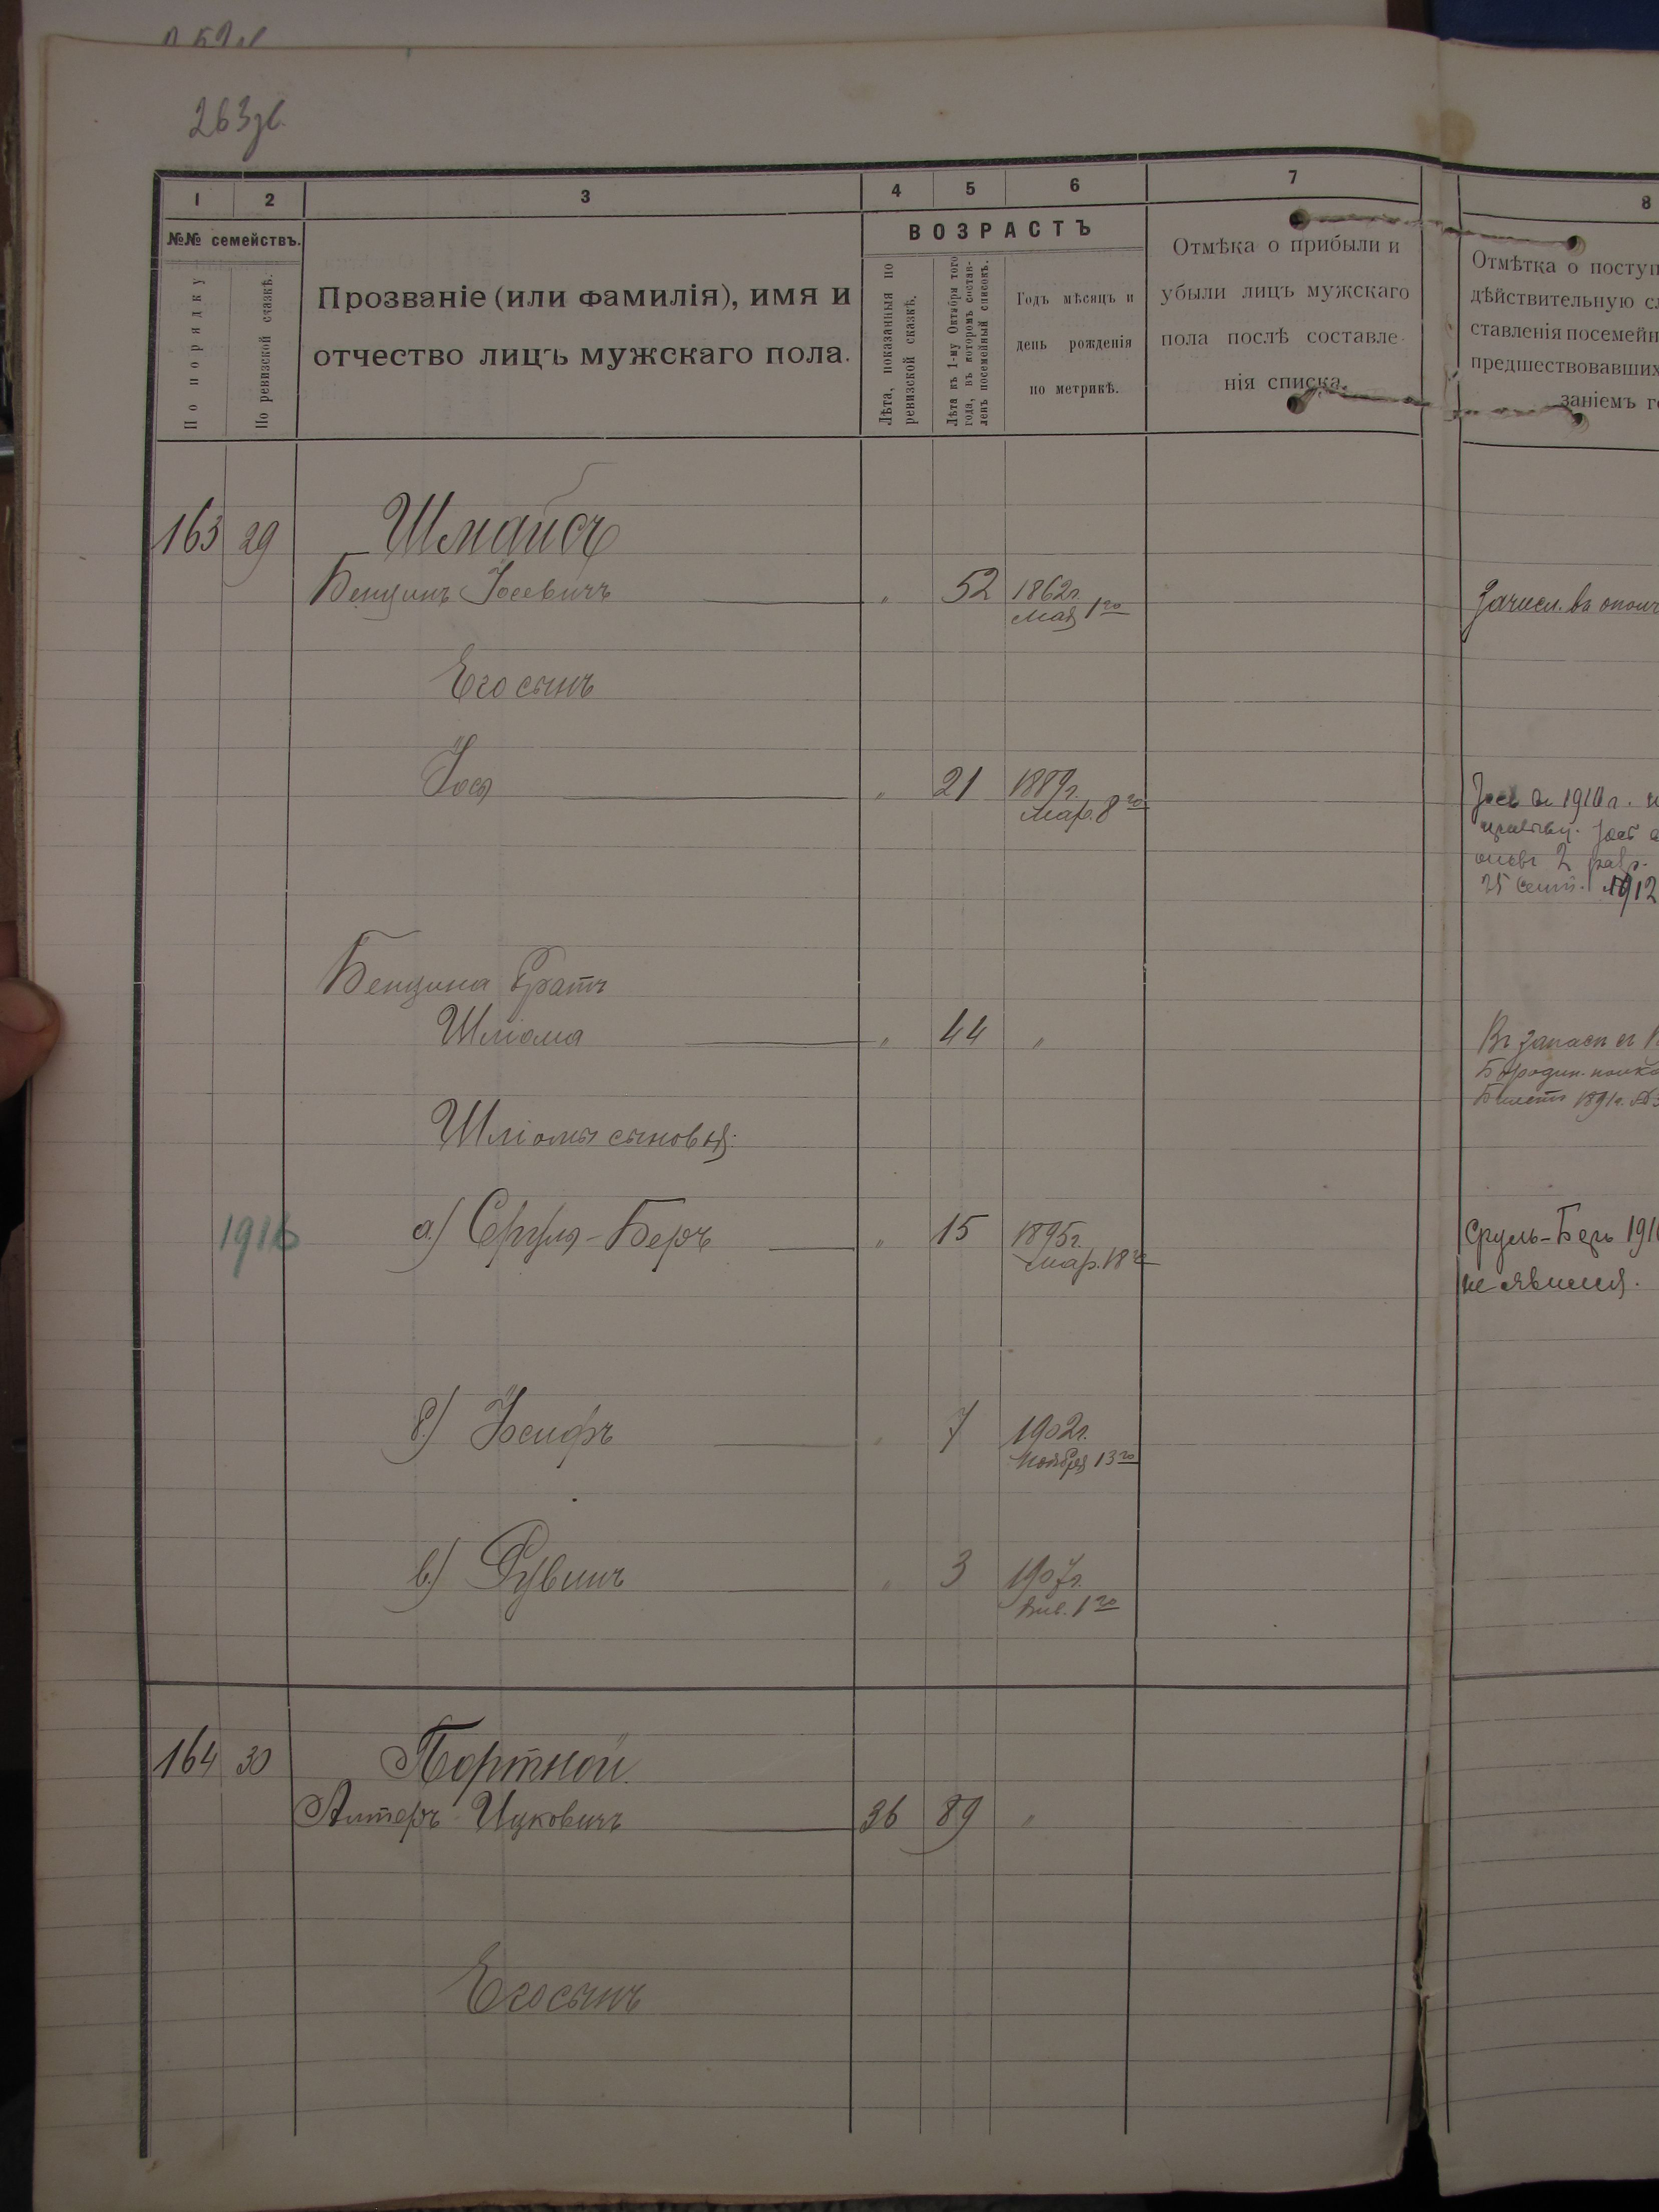 263зв.
1 2 3 4 5 6 7 8
№№ семействъ.
По порядку
По ревизской сказкѣ.
Прозваніе (или фамилія), имя и
отчество лицъ мужскаго пола.
ВОЗРАСТЪ
Лѣта, показанныя по
ревизской сказкѣ.
Лѣта къ 1-му Октября того
года, въ которомъ состав-
ленъ посемейный списокъ.
Годъ мѣсяцъ и
день рожденія
по метрикѣ.
Отмѣка о прибыли и
убыли лицъ мужскаго
пола послѣ составле-
нія списка.
Отмѣтка о поступ
дѣйствительную сл
ставленія посемейн
предшествовавших
заніемъ го
163 29 Шмайсъ
Бенціинъ Іосевичъ " 52 1862г.
Мая 1го
Зачисл. въ ополч
Его сынъ
Іося " 21 1889г.
Мар. 8го
1910г.
2 разр.
25 Сент. 1912
Бенціина братъ
Шліома " 44 "
Въ запасъ съ
Бородин. полка
Билетъ 1891г. №
Шліомы сыновья:
1916 а) Сруля-Беръ " 15 1895г.
Мар. 18го
Сруль-Беръ 191
не явился.
б) Іосифъ " 7 1902г.
Ноября 13го
в) Рувинъ " 3 1907г.
Янв. 1го
164 30 Портной.
Алтеръ Ицковичъ 36 89 "
Его сынъ